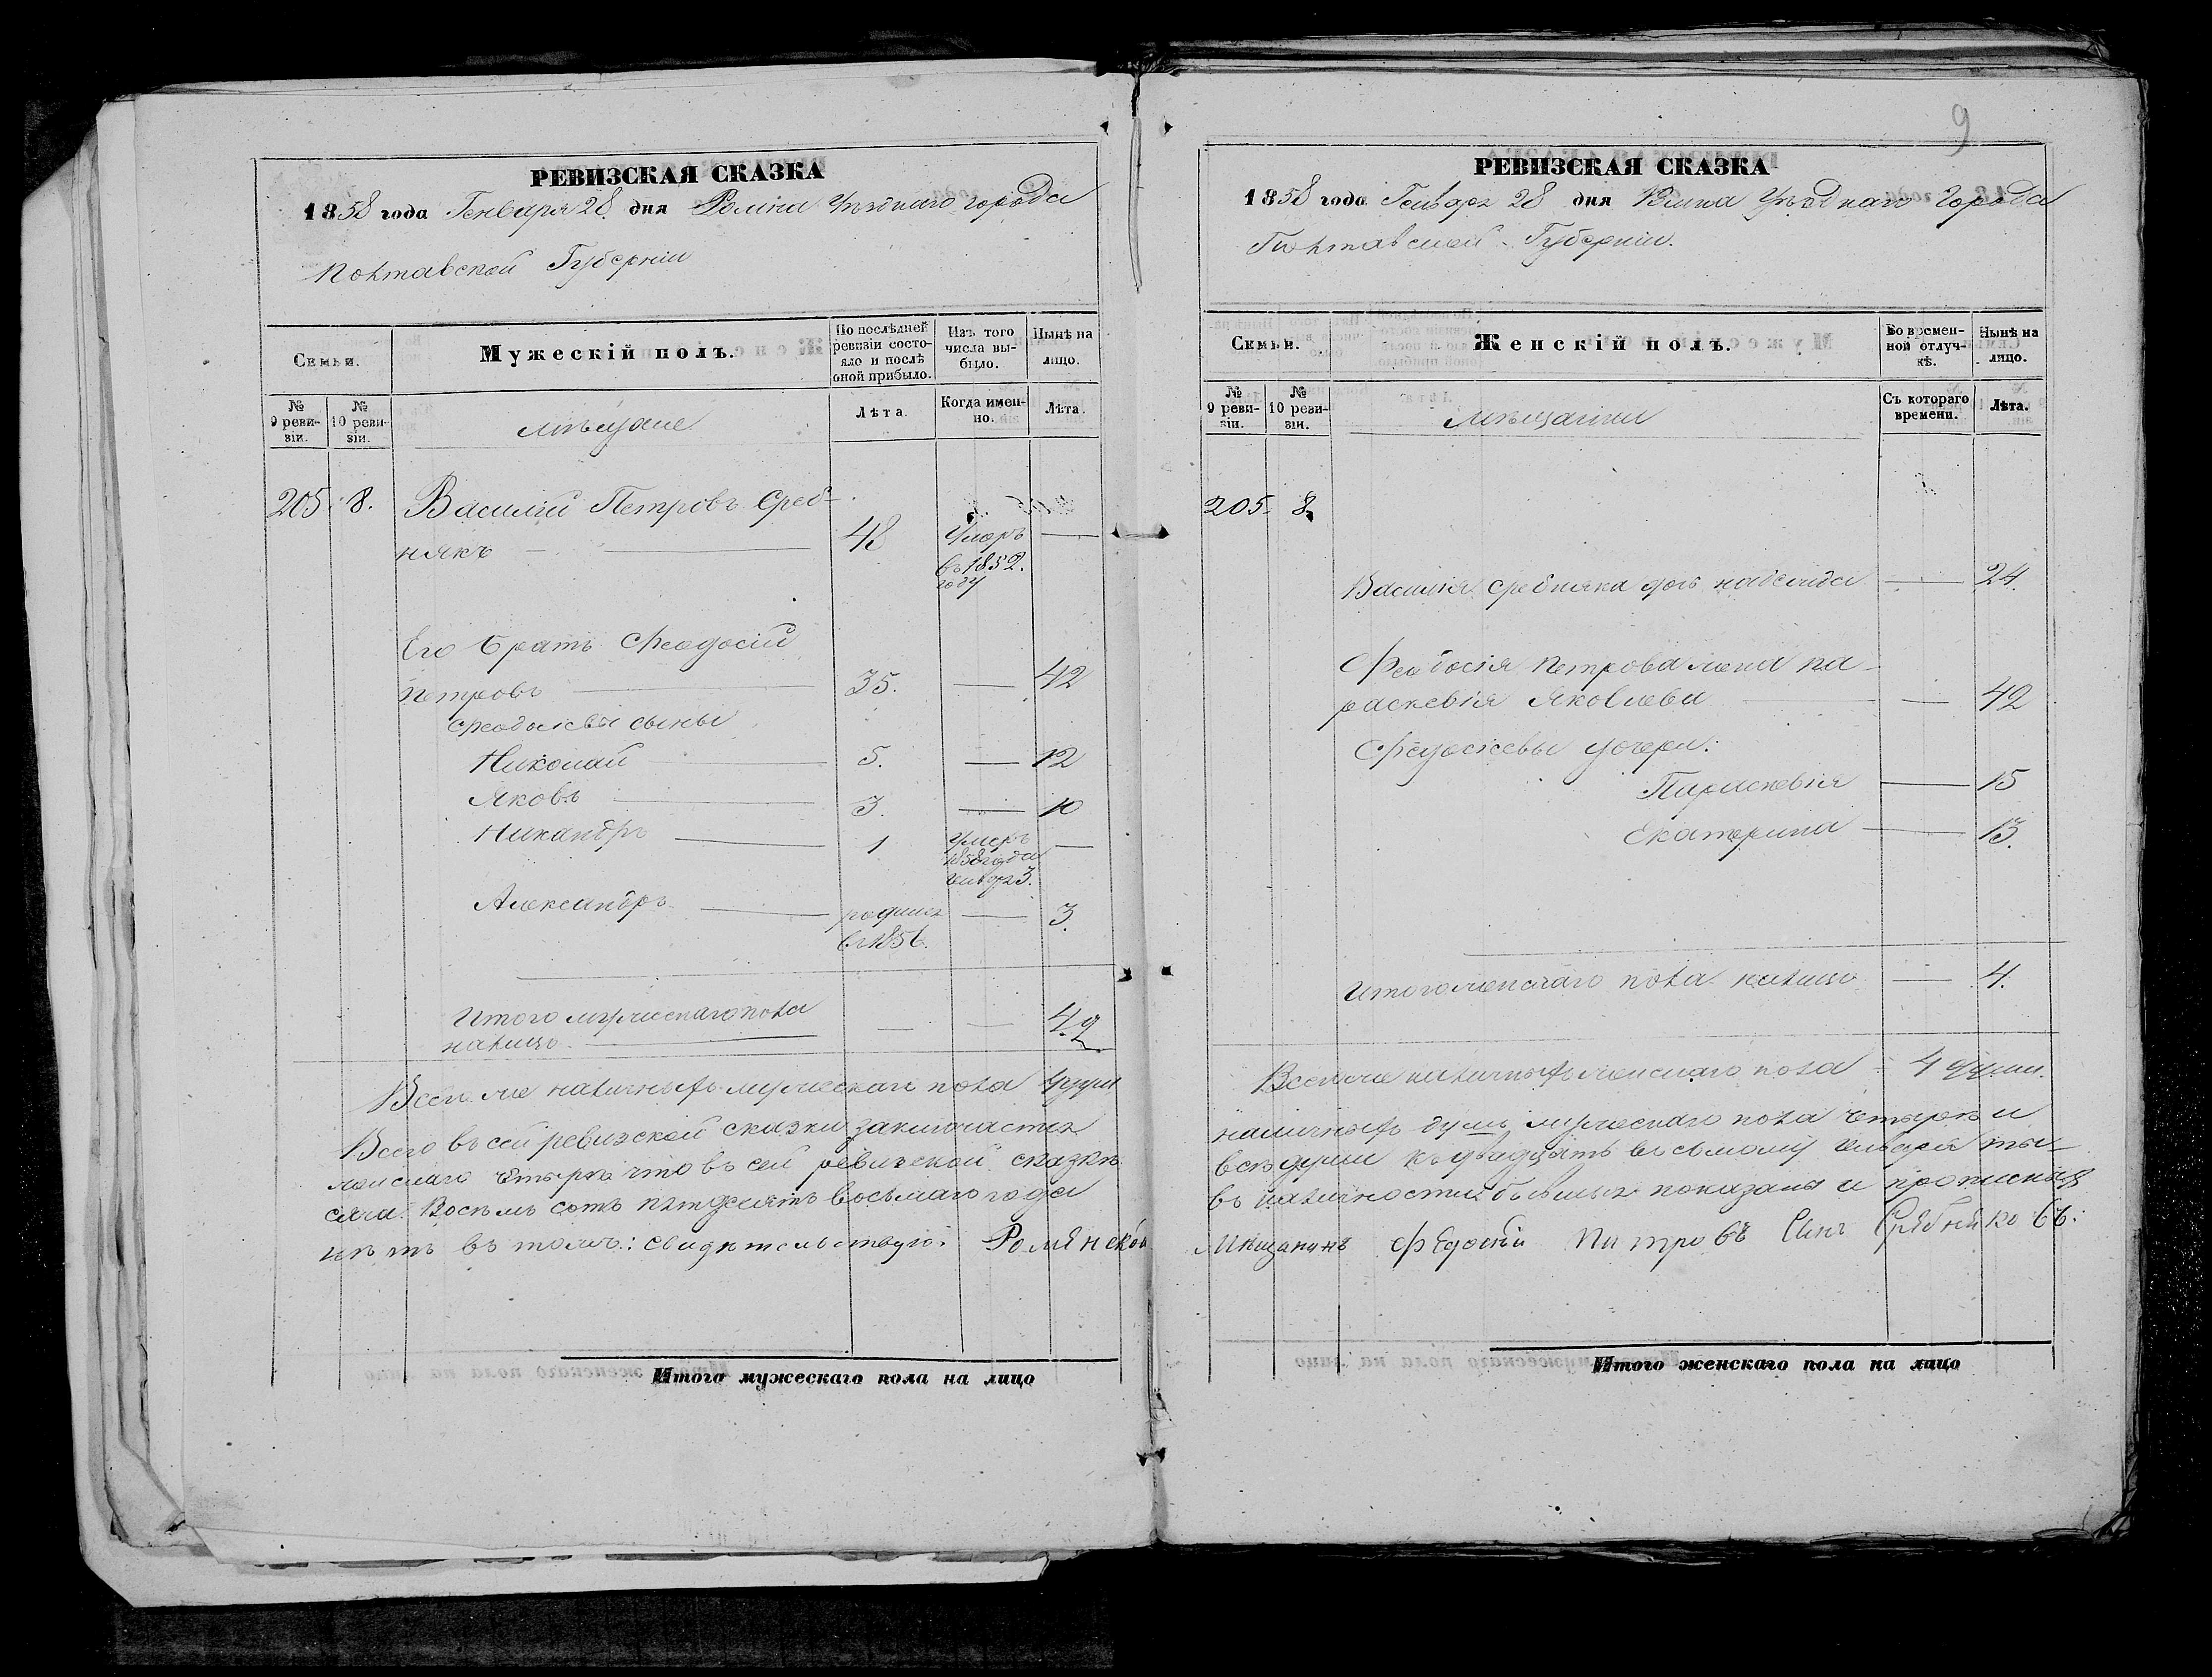 РЕВИЗСКАЯ СКАЗКА
1858 года Генваря 28 дня Ромна Уѣзднаго города
Полтавской Губерніи
Семьи.
Мужескій полъ.
По послѣдней ревизіи состояло и послѣ оной прибыло.
Изъ того числа выбыло.
Нынѣ на лицо.
№ 9 ревизіи.
№ 10 ревизіи.
мѣщане
Лѣта.
Когда именно.
Лѣта.
205. 8. Василій Петровъ Сред-
някъ 48 Умеръ въ 1852. году
Его братъ Феодосій
Петровъ 35. 42
Феодосіевы сыны
Николай 5. 12
Яковъ 3. 10
Никандръ 1 Умеръ 1858 года Генваря 3.
Александръ родился въ 1856. 3.
Итого мужескаго пола
налицо 4
Всего же наличныхъ мужескаго пола 4 души
Всего въ сей ревизской сказки заключается
женскаго четыре что въ сей ревизской сказкѣ
сяча Восемь сотъ пятдесятъ восьмаго года
нѣтъ въ томъ: свидѣтельствую: Роменской
9
РЕВИЗСКАЯ СКАЗКА
1858 года Генваря 28 дня Ромна Уѣзднаго Города
Полтавской Губерніи.
Семьи.
Женскій полъ.
Во временной отлучкѣ.
Нынѣ на лицо.
№ 9 ревизіи.
№ 10 ревизіи.
мѣщанки
Съ котораго времени.
Лѣта.
205. 8.
Василія Средняка дочь 24.
Феодосія Петрова жена Па-
раскевія Яковлева 42
Феодосіевы дочери:
Параскевія 15
Екатерина 13.
Итого женскаго пола налицо 4.
Всего же наличныхъ женскаго пола 4 души.
наличныхъ душъ мужескаго пола четыре и
всѣ души къ двадцать восьмому Генваря ты-
въ наличности бывшыя показаны и прописныхъ
Мѣщанинъ Федосій Питровъ Синъ
Итого мужескаго пола на лицо
Итого женскаго пола на лицо